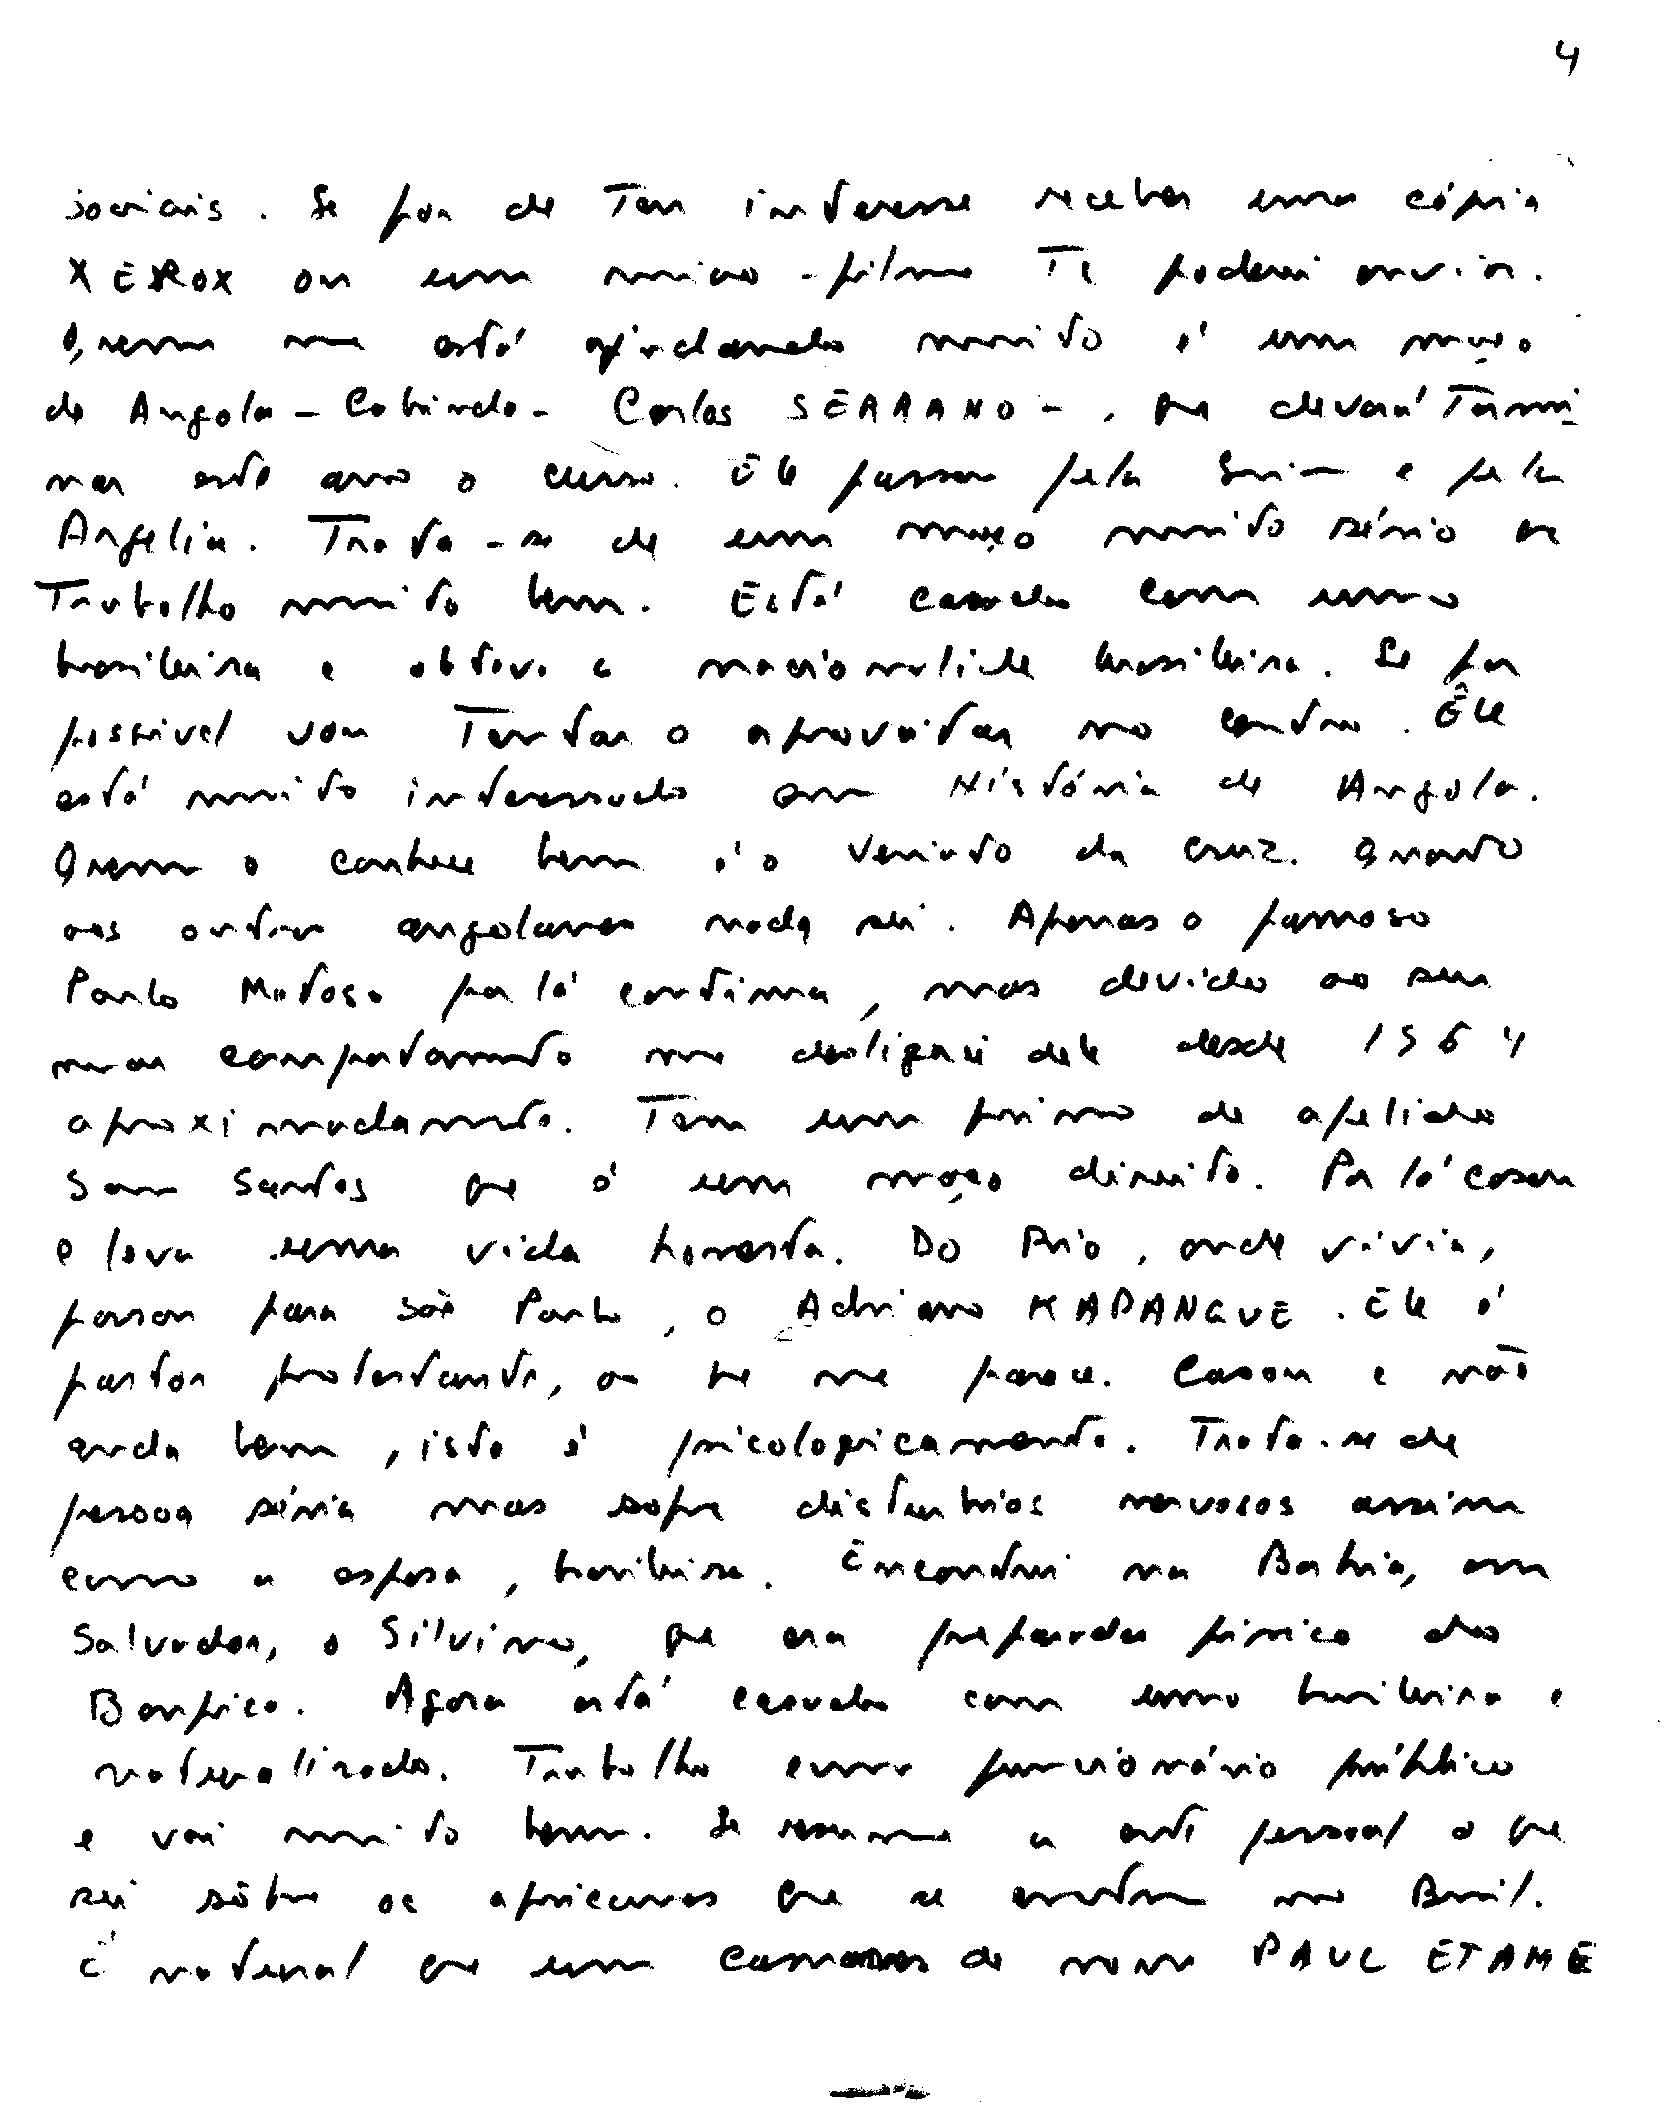 4
sociais. Se for de teu interesse receber uma cópia
XEROX ou um micro-filme te poderei enviar.
Quem me está ajudando muito é um moço
de Angola - Cabinda - Carlos SERRANO -, que deverá termi-
nar este ano o curso. Ele passou pela Suí e pela
Argelia. Trata-se de um moço muito sério e
trabalha muito bem. Está casado com uma
brasileira e obteve a nacionalide brasileira. Se for
possível vou tentar o aproveitar no centro. Êle
está muito interessado em História de Angola.
Quem o conhece bem é o da Cruz. Quanto
aos outros angolanos nada sei. Apenas o famoso
Paulo Matoso por lá continua, mas devido ao seu
mau comportamento me desliguei dele desde 1964
aproximadamente. Tem um primo de apelido
Sam Santos que é um moço direito. Por lá casou
e leva uma vida honesta. Do Rio, onde vivia,
passou para São Paulo, o Adriano KAPANGUE. Ele é
pastor protestante, ao que me parece. Casou e não
anda bem, isto é psicologicamente. Trata-se de
pessoa séria mas sofre distúrbios nervosos assim
como a esposa, brasileira. Encontrei na Bahia, em
Salvador, o Silvino, que era preparador físico do
Benfica. Agora está casado com uma brasileira e
naturalizado. Trabalha como funcionário público
e vai muito bem. Se resume a este pessoal o que
sei sôbre os africanos que se encontram no Brasil.
É natural que um camarões de nome PAUL ETAME